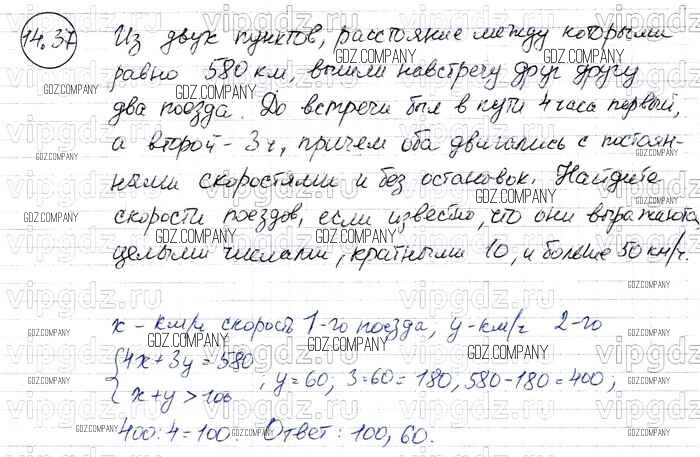 14.37 Из двух пунктов, расстояние между которыми
равно 580 км, вышли навстречу друг другу
два поезда. До встречи был в пути 4 часа первый,
а второй - 3 ч, причем оба двигались с постоян-
ными скоростями и без остановок. Найдите
скорости поездов, если известно, что они выражаются
целыми числами, кратными 10, и больше 50 км/ч.
x - км/ч скорость 1-го поезда, y - км/ч 2-го
{4x+3y=580
{x+y>100, y=60, 3=60=180, 580-180=400;
400:4=100. Ответ: 100, 60.
GDZ.COMPANY
vipgdz.ru